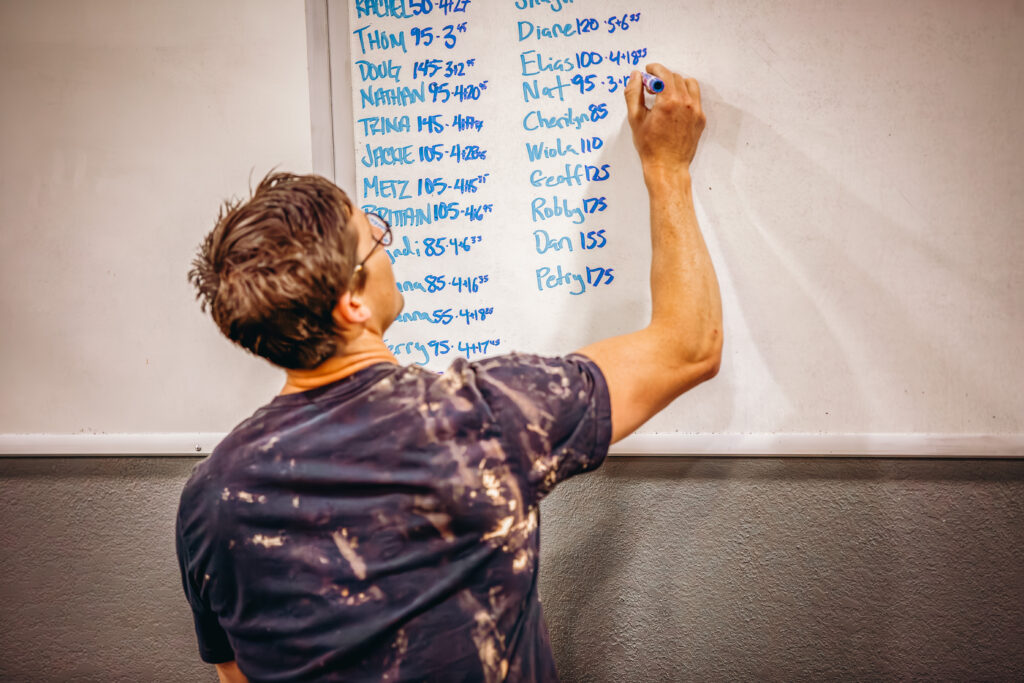 RACHEL 50·4+27
THOM 95·3 45
DOUG 145·3+12 95
NATHAN 95·4+20 45
TRINA 145·4+
JACKIE 105·4+28 45
METZ 105·4+15 35
BRITTANI 105·4+6 45
adi 85·4+6 35
nna 85·4+16 35
enna 55·4+18 25
erry 95·4+17 45
Diane 120·5+6 35
Elias 100·4+18 35
Nat 95·3+
Cherilyn 85
Wiola 110
Geoff 125
Robby 175
Dan 155
Petry 175